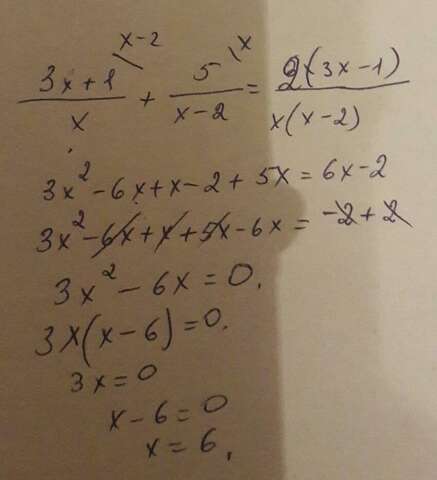 x-2 x
(3x+1)/x + 5/(x-2) = 2(3x-1)/(x(x-2))
3x²-6x+x-2+5x=6x-2
3x²-6x+x+5x-6x=-2+2
3x²-6x=0.
3x(x-6)=0.
3x=0
x-6=0
x=6.